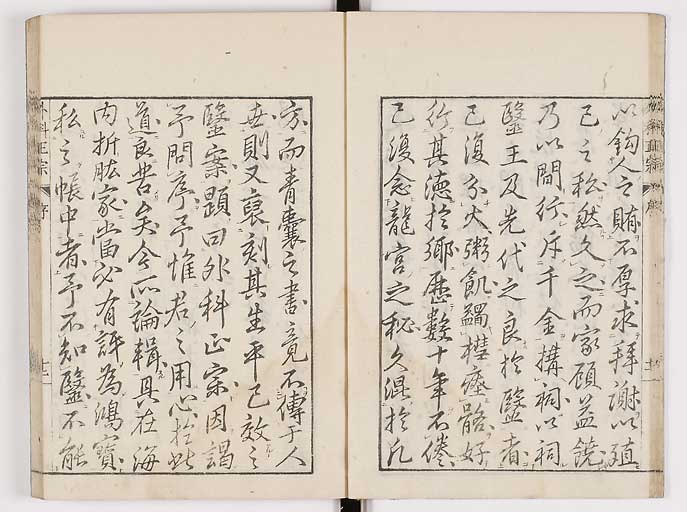 以鈎人之賄不厚求拜謝以殖
已之私然久之而家頗益饒
乃以間行斥千金搆祠以祠
醫王及先代之良於醫者
已復分火粥飢蠲槥瘞骼好
行其德於鄉歷數十年不倦
已復念龍宮之秘久混於凡
方而青囊之書竟不傳于人
世則又裒刻其生平已效之
醫案題曰外科正宗因謁
予問序予惟君之用心於此
道良苦矣今所論輯具在海
内折肱家當必有評為鴻寶
私之帳中者予不知醫不能
外科正宗
序
十二